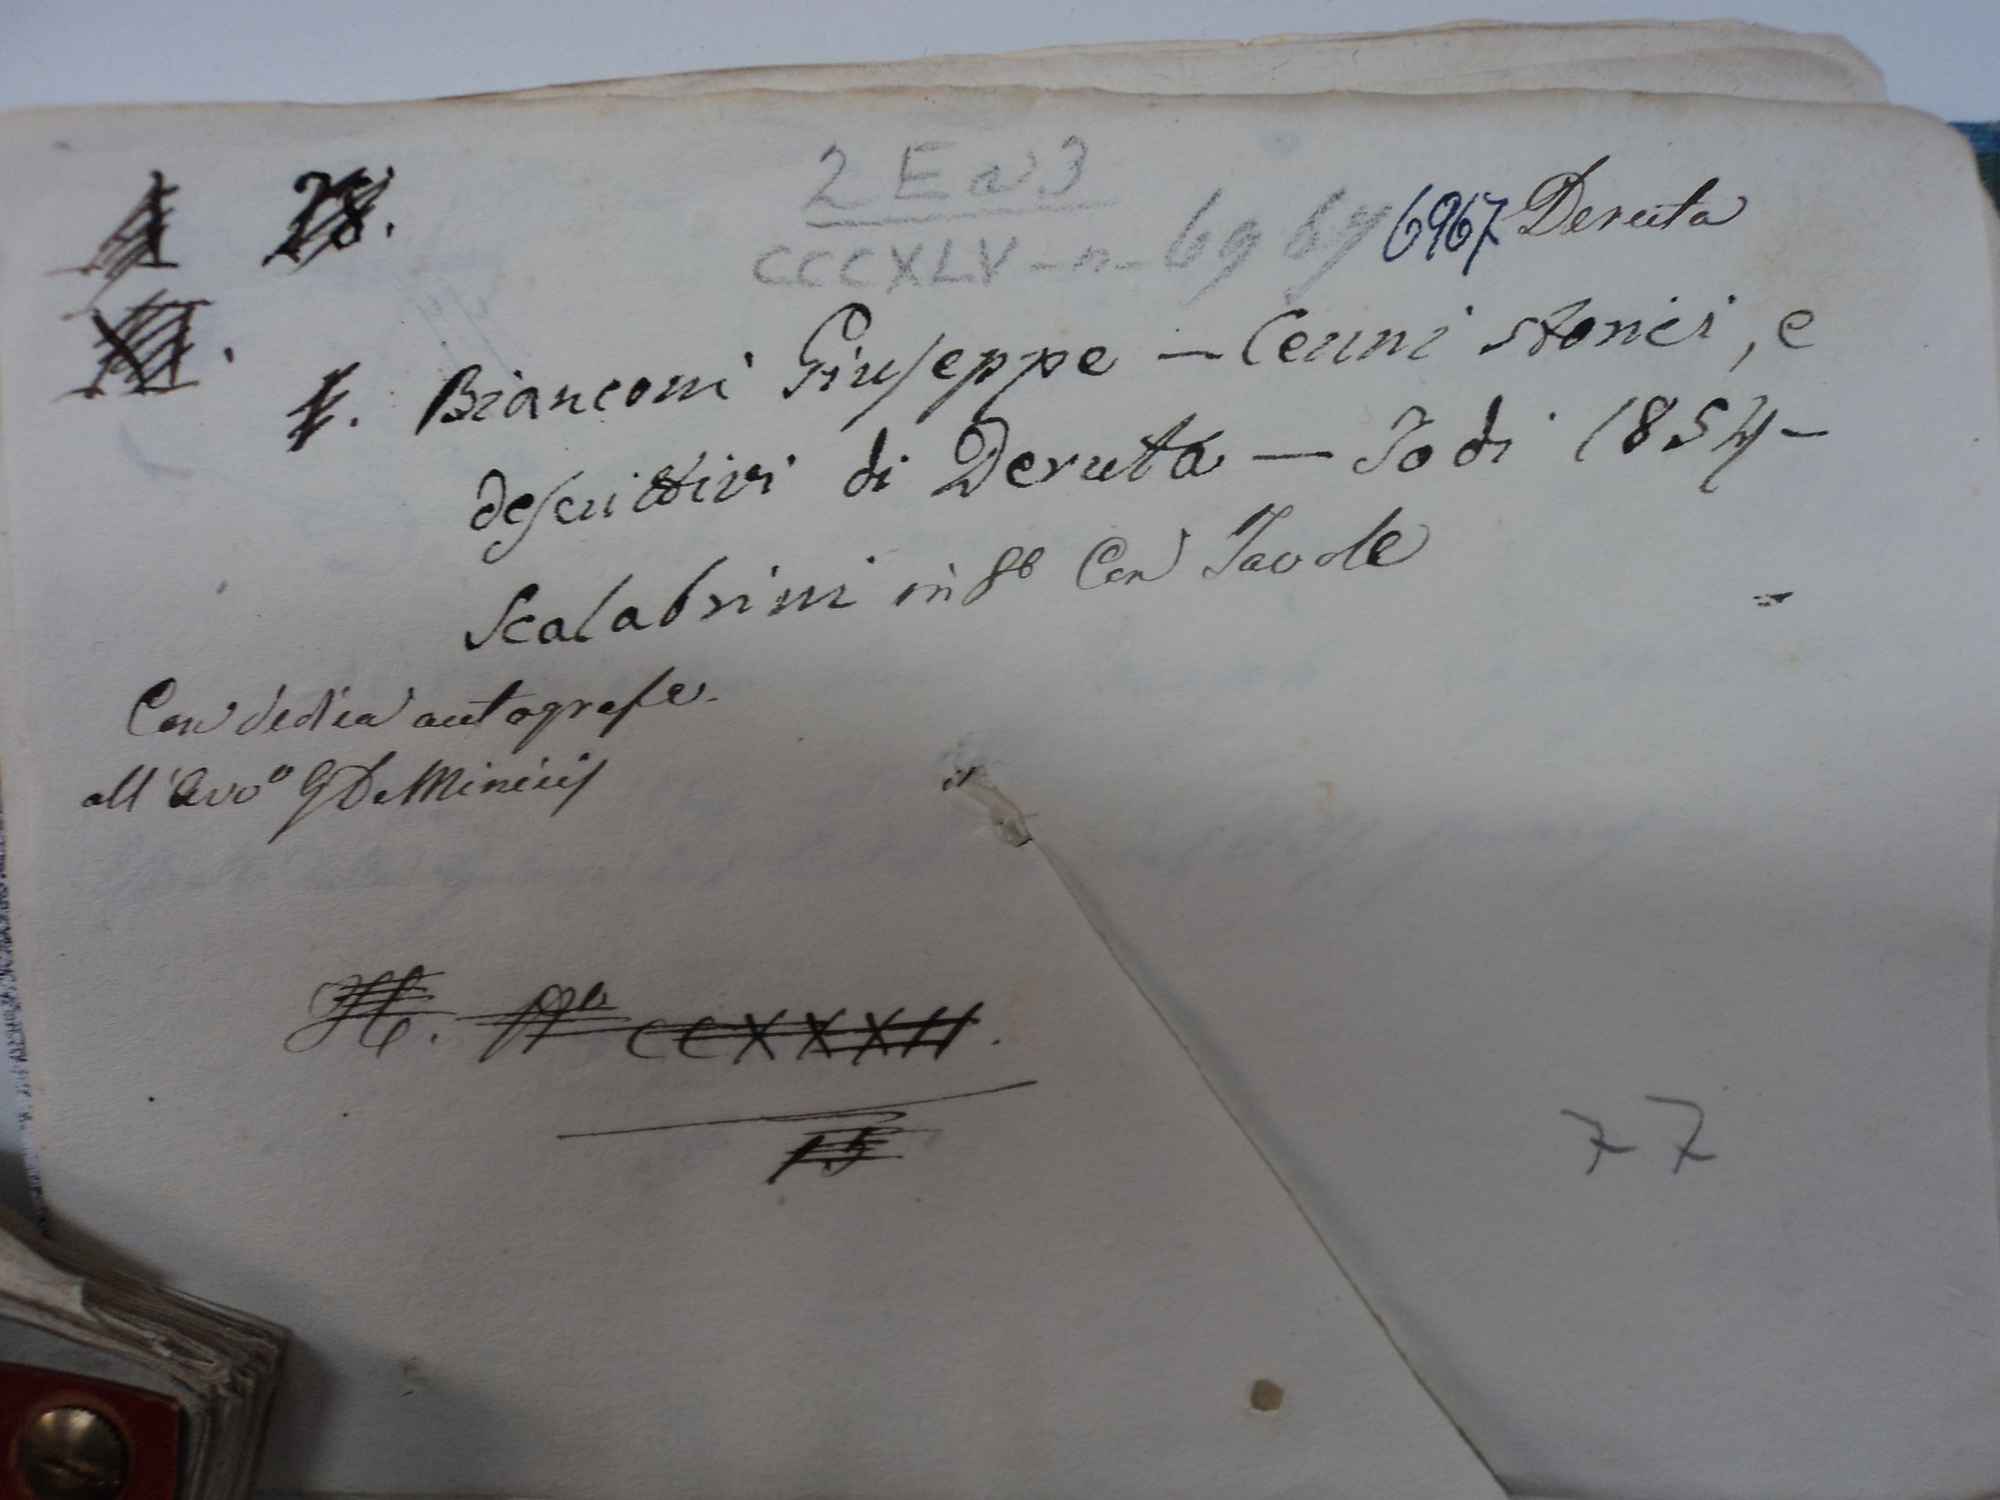 A 28. 2 E a 3
CCCXLV - n - 6967 6967 Deruta
XI.
1. Bianconi Giuseppe — Cenni storici, e
descrittivi di Deruta — Todi 1854 —
Scalabrini in 8º Con Tavole
Con dedica autografa
all'Avvº G De Minicis
H. Nº CCXXXII.
15
77